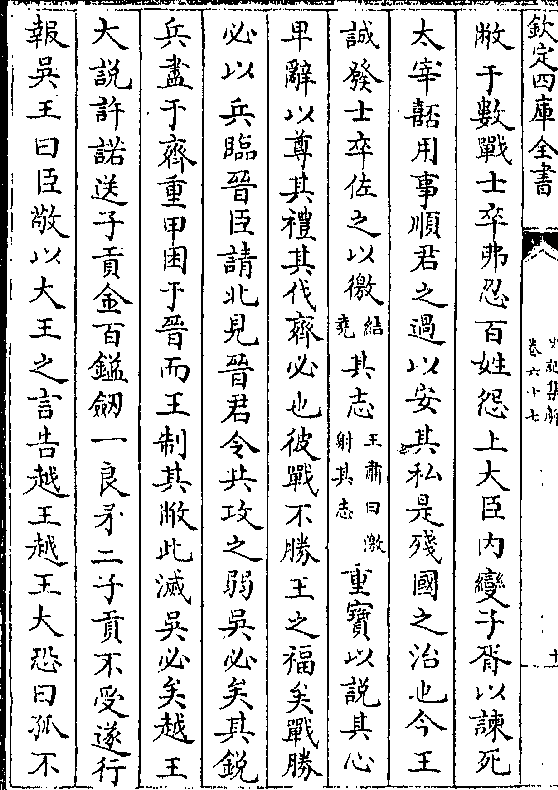 欽定四庫全書
史記集解
卷六十七
敝于數戰士卒弗忍百姓怨上大臣内變子胥以諫死
太宰嚭用事順君之過以安其私是殘國之治也今王
誠發士卒佐之以徼結堯其志王肅曰激射其志重寶以說其心
卑辭以尊其禮其伐齊必也彼戰不勝王之福矣戰勝
必以兵臨晉臣請北見晉君令共攻之弱吳必矣其銳
兵盡于齊重甲困于晉而王制其敝此滅吳必矣越王
大說許諾送子貢金百鎰劒一良矛二子貢不受遂行
報吳王曰臣敬以大王之言告越王越王大恐曰孤不